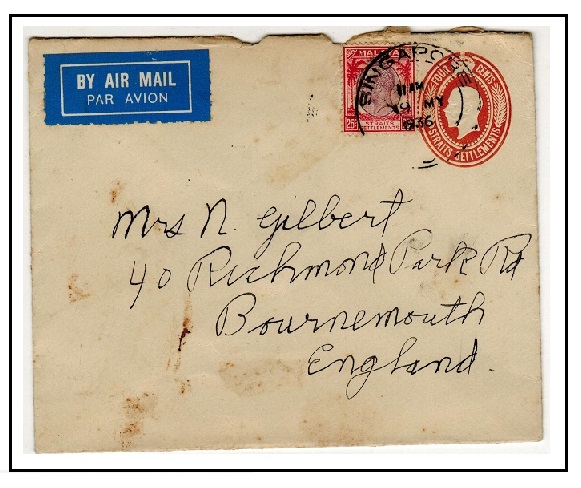 BY AIR MAIL
PAR AVION
MALAYA
25c
STRAITS
SETTLEMENTS
SINGAPORE
MY
1936
FOUR CENTS
STRAITS SETTLEMENTS
Mrs N. Gilbert
40 Richmond Park Rd
Bournemouth
England.